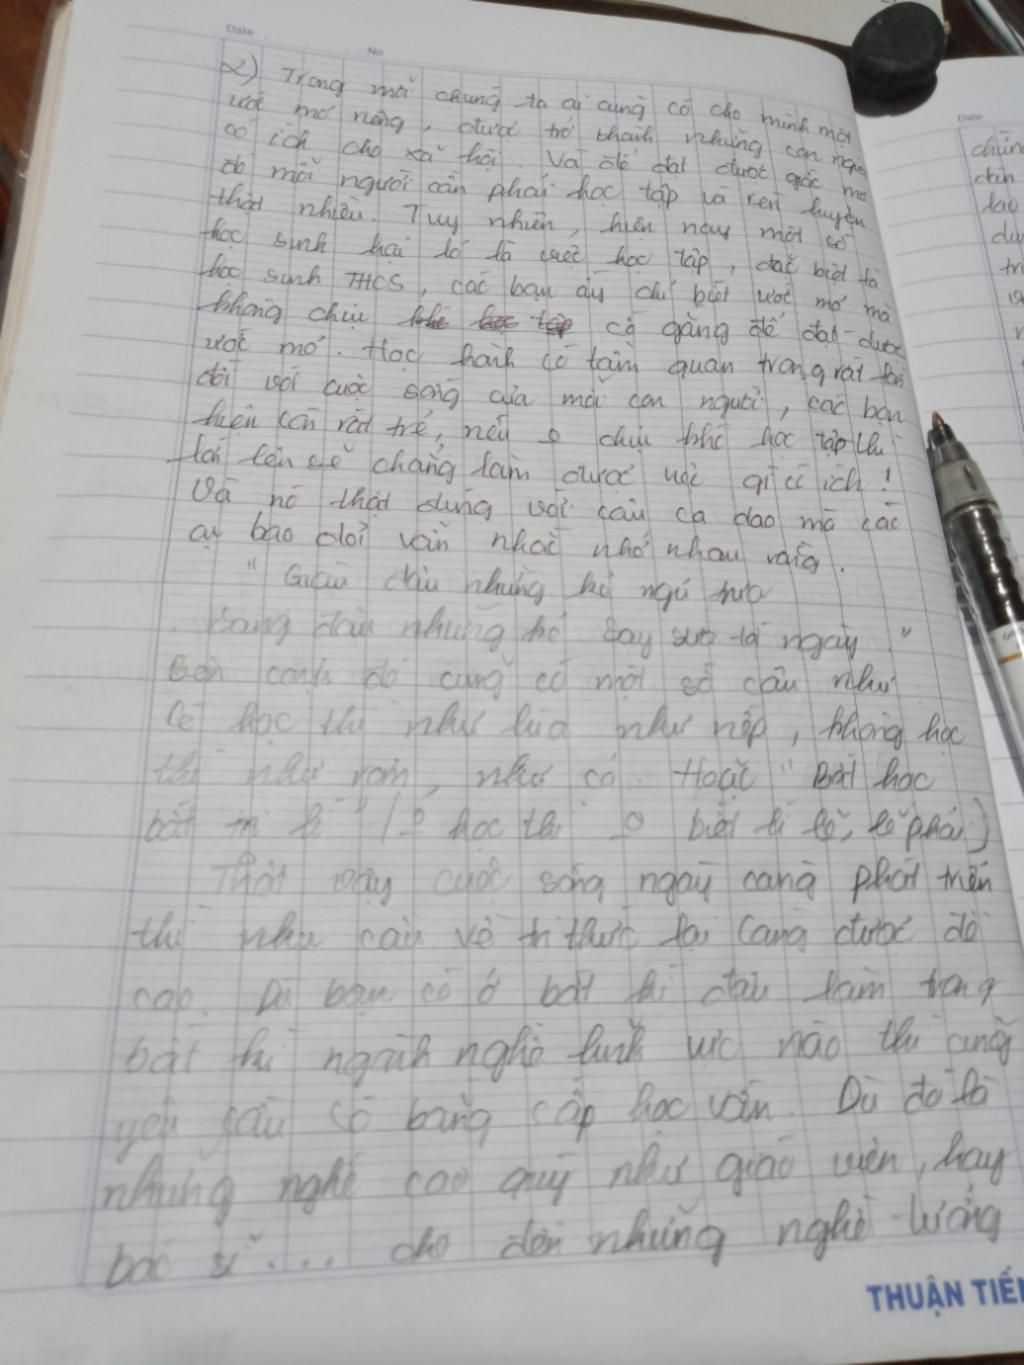 Date
No
2) Trong mỗi chúng ta ai cũng có cho mình một
ước mơ riêng, được trở thành những con người
có ích cho xã hội. Và để đạt được giấc mơ
đó mỗi người cần phải học tập và rèn luyện
thật nhiều. Tuy nhiên, hiện nay một số
học sinh lại lơ là việc học tập, đặc biệt là
học sinh THCS, các bạn ấy chỉ biết ước mơ mà
không chịu cố gắng để đạt được
ước mơ. Học hành có tầm quan trọng rất lớn
đối với cuộc sống của mỗi con người, các bạn
hiện còn rất trẻ, nếu o chịu khó học tập thì
lớn lên sẽ chẳng làm được việc gì có ích!
Và nó thật đúng với câu ca dao mà các
cụ bao đời vẫn nhắc nhở nhau rằng.
" Giàu đâu những kẻ ngủ trưa
Sang đâu những kẻ say sưa tối ngày "
Bên cạnh đó cũng có một số câu như
Có học thì như lúa như nếp, không học
thì như rơm, như cỏ. Hoặc " Bất học
bất tri lí " ( o học thì o biết lí lẽ, lẽ phải )
Thật vậy cuộc sống ngày càng phát triển
thì nhu cầu về tri thức lại càng được đề
cao. Dù bạn có ở bất kì đâu làm trong
bất kì ngành nghề lĩnh vực nào thì cũng
yêu cầu có bằng cấp học vấn. Dù đó là
những nghề cao quý như giáo viên, hay
bác sĩ .... cho đến những nghề lương
THUẬN TIẾN
Date